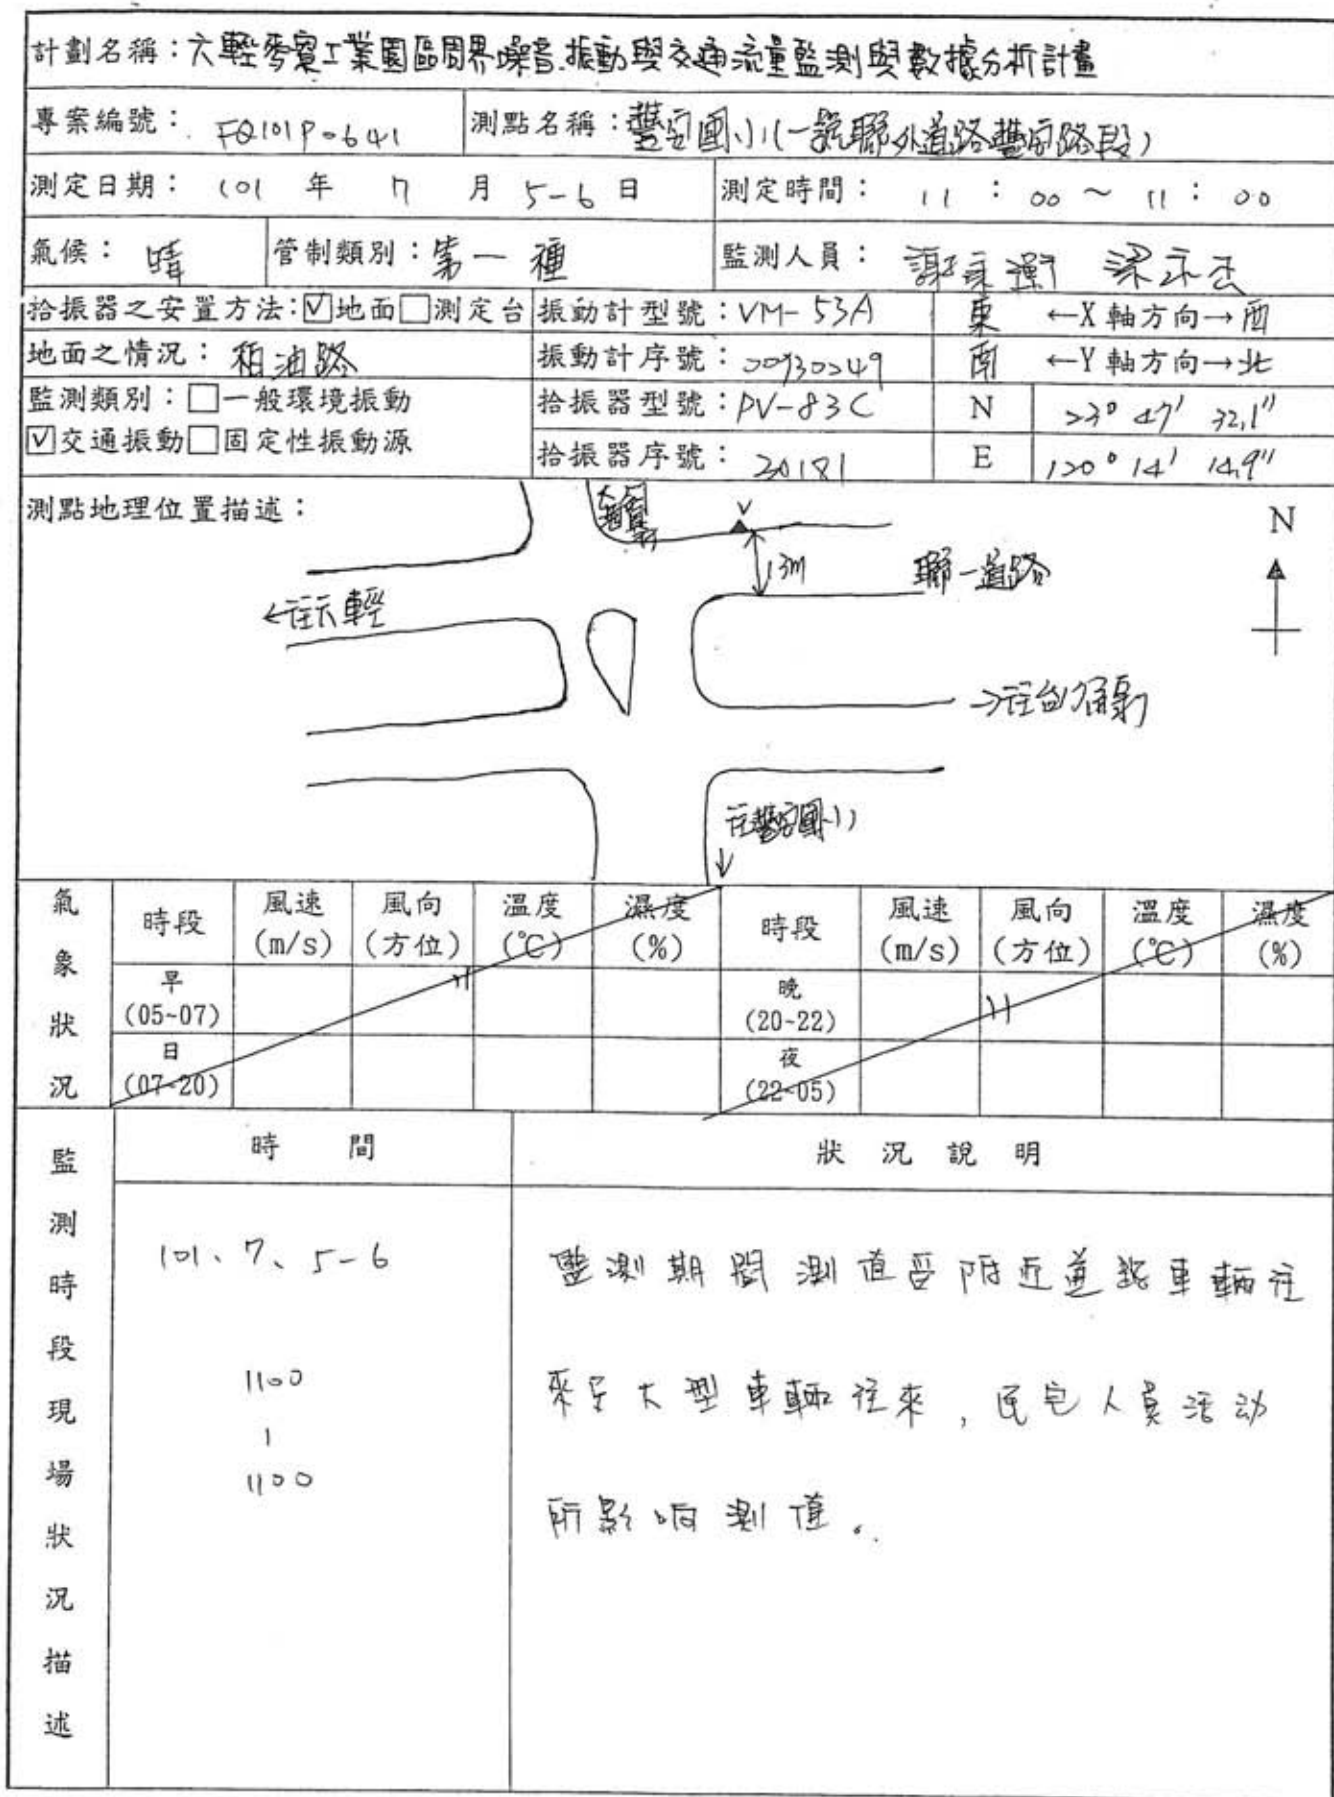 計劃名稱：六輕麥寮工業園區周界噪音.振動與交通流量監測與數據分析計畫
專案編號： FQ101P0641 測點名稱：豐安國小(一號聯外道路豐安路段)
測定日期： 101 年 7 月 5-6 日 測定時間： 11 : 00 ~ 11 : 00
氣候： 晴 管制類別：第一種 監測人員：
拾振器之安置方法：☑地面□測定台 振動計型號：VM-53A 東 ←X軸方向→ 西
地面之情況： 柏油路 振動計序號： 00930249 南 ←Y軸方向→ 北
監測類別：□一般環境振動 拾振器型號：PV-83C N 23° 47' 32.1"
☑交通振動□固定性振動源 拾振器序號： 20181 E 120° 14' 14.9"
測點地理位置描述：
V
N
13m
聯一道路
←往六輕
→往台
往豐安國小
↓
氣象狀況 時段 風速(m/s) 風向(方位) 溫度(℃) 濕度(%) 時段 風速(m/s) 風向(方位) 溫度(℃) 濕度(%)
早(05~07) 晚(20~22)
日(07~20) 夜(22~05)
監測時段現場狀況描述 時間 狀況說明
101、7、5-6 監測期間測值受附近道路車輛往
1100 來至大型車輛往來，民宅人員活动
|
1100 所影响測值。